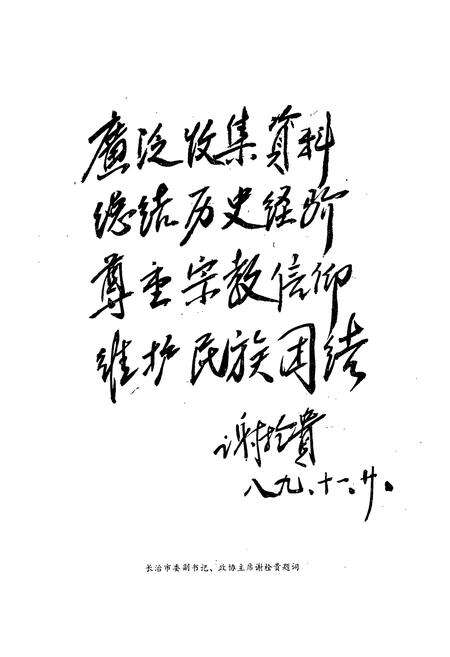 廣泛收集資料
总结历史经验
尊重宗教信仰
维护民族团结
谢拴贵
八九、十一、廿。
长治市委副书记、政协主席谢拴贵题词